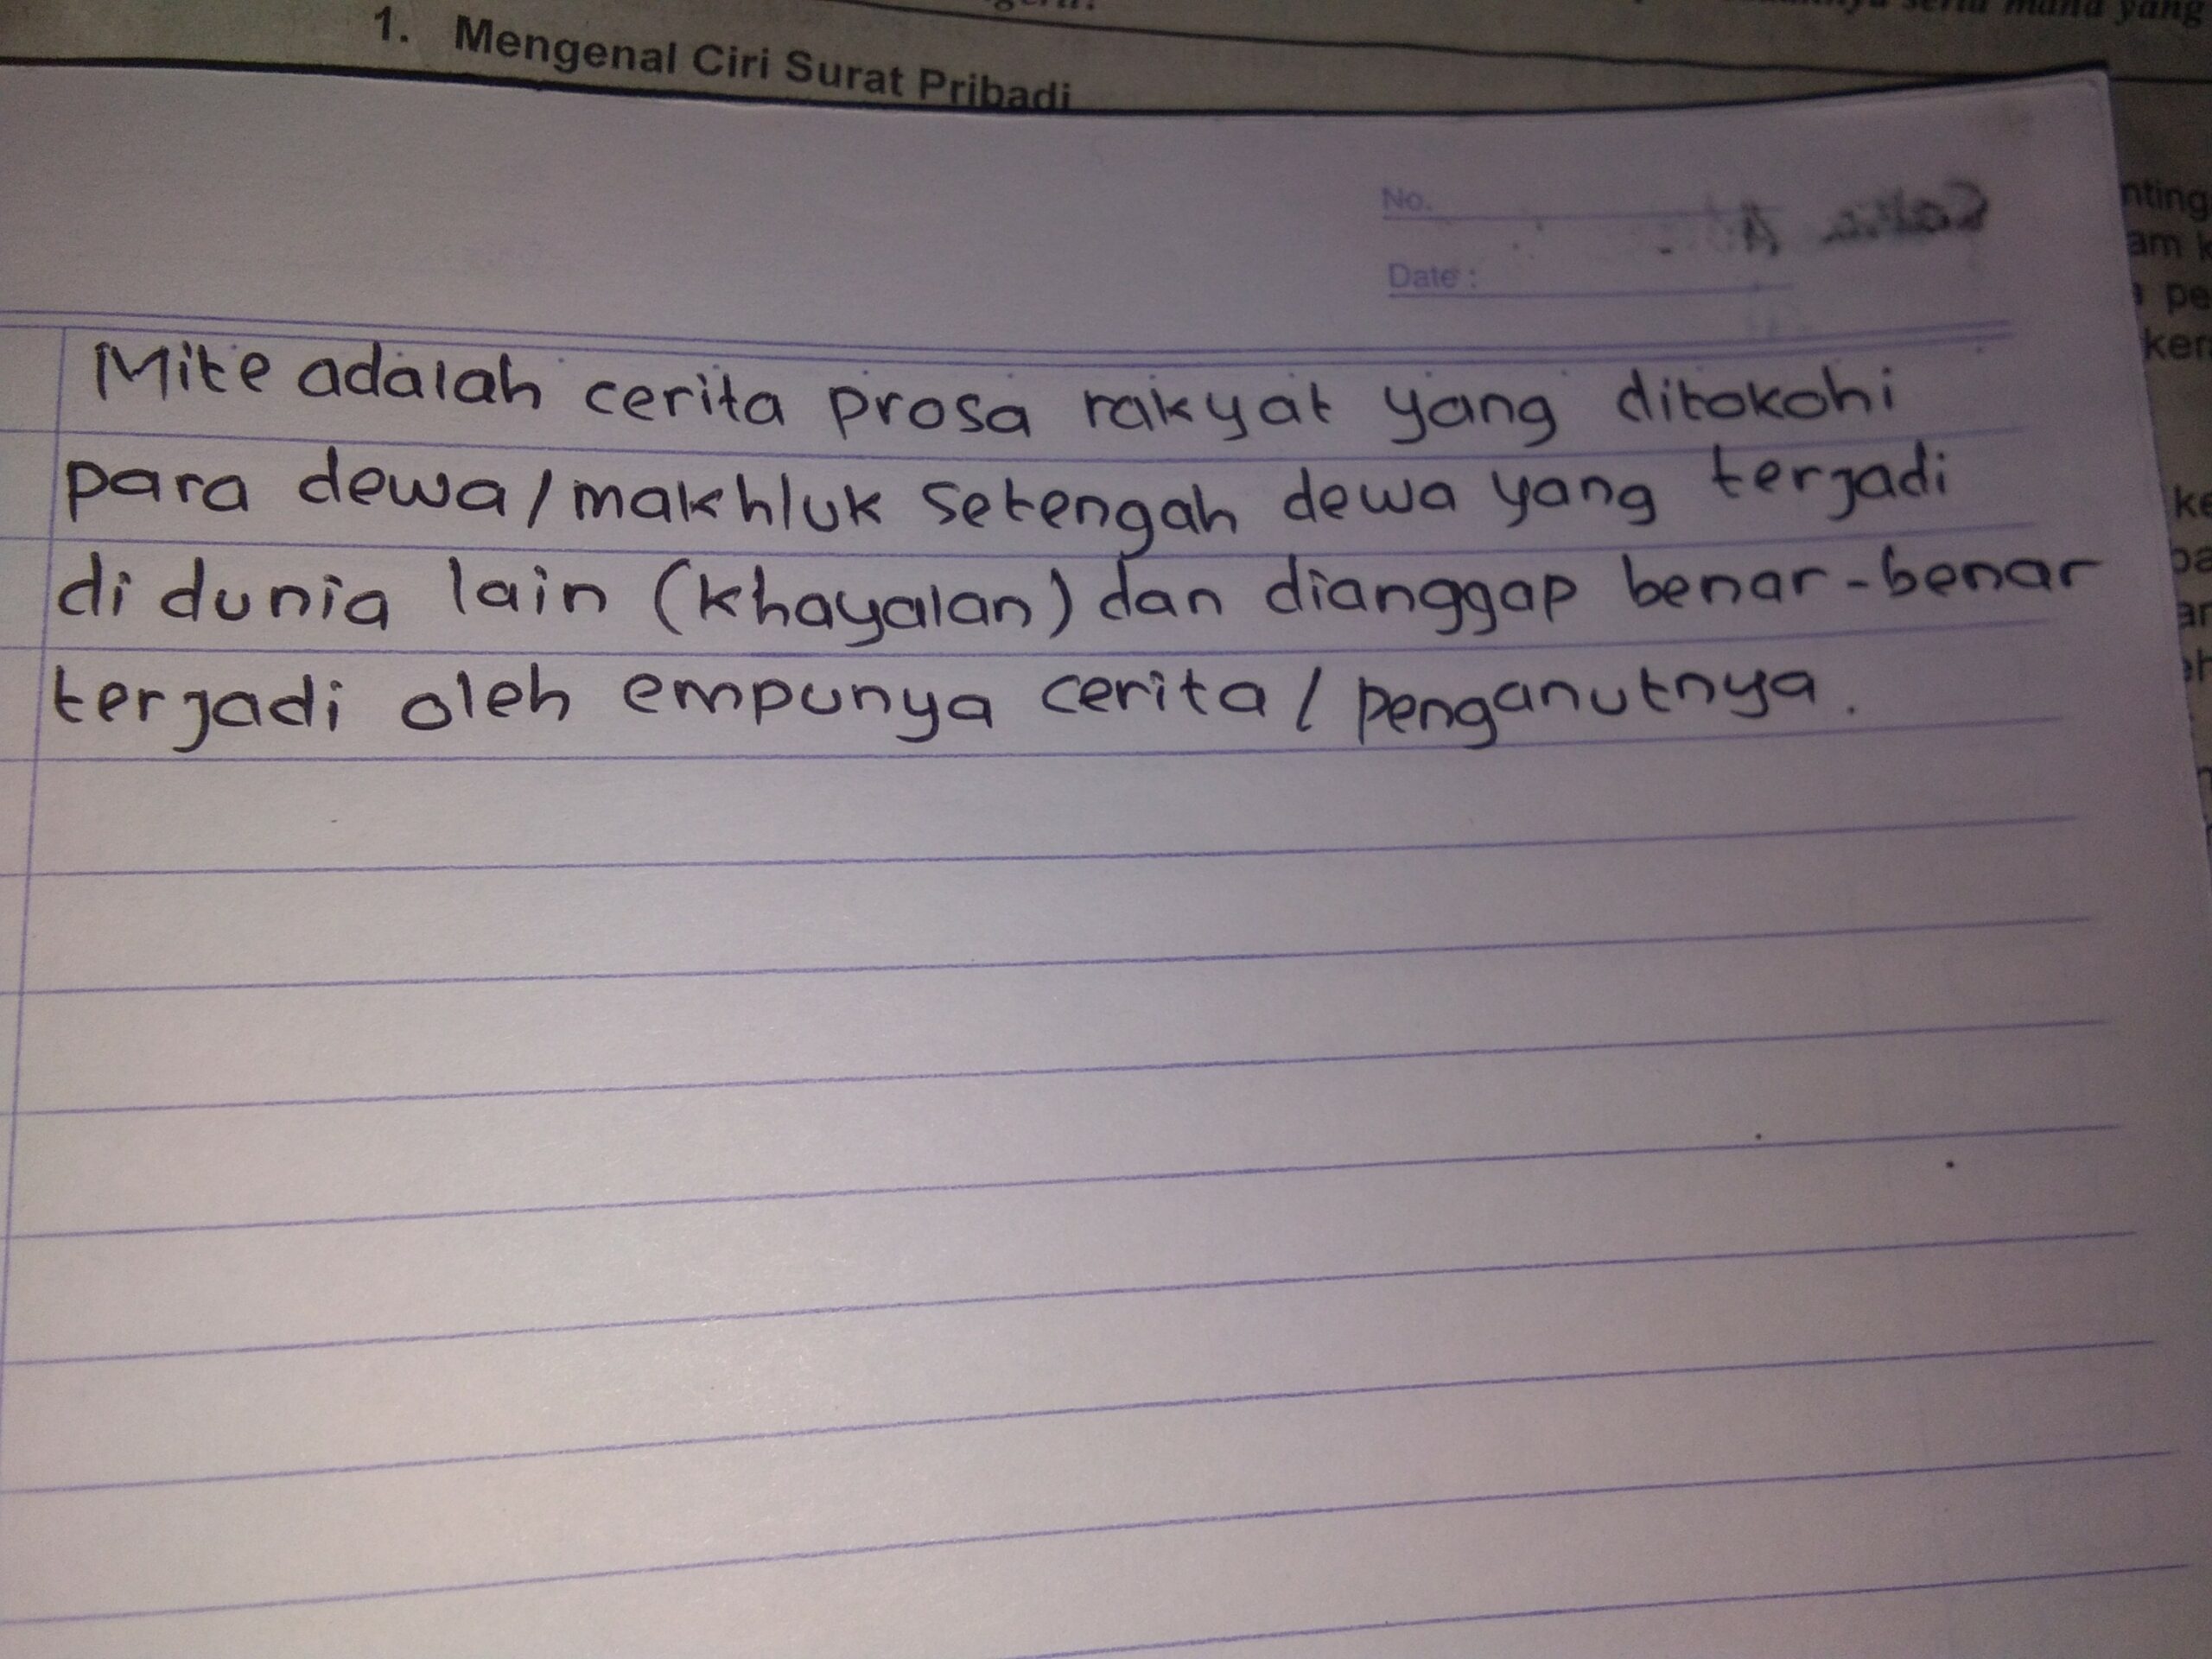 1. Mengenal Ciri Surat Pribadi
No.
Date :
Mite adalah cerita prosa rakyat yang ditokohi
para dewa / makhluk setengah dewa yang terjadi
di dunia lain (khayalan) dan dianggap benar-benar
terjadi oleh empunya cerita / penganutnya.